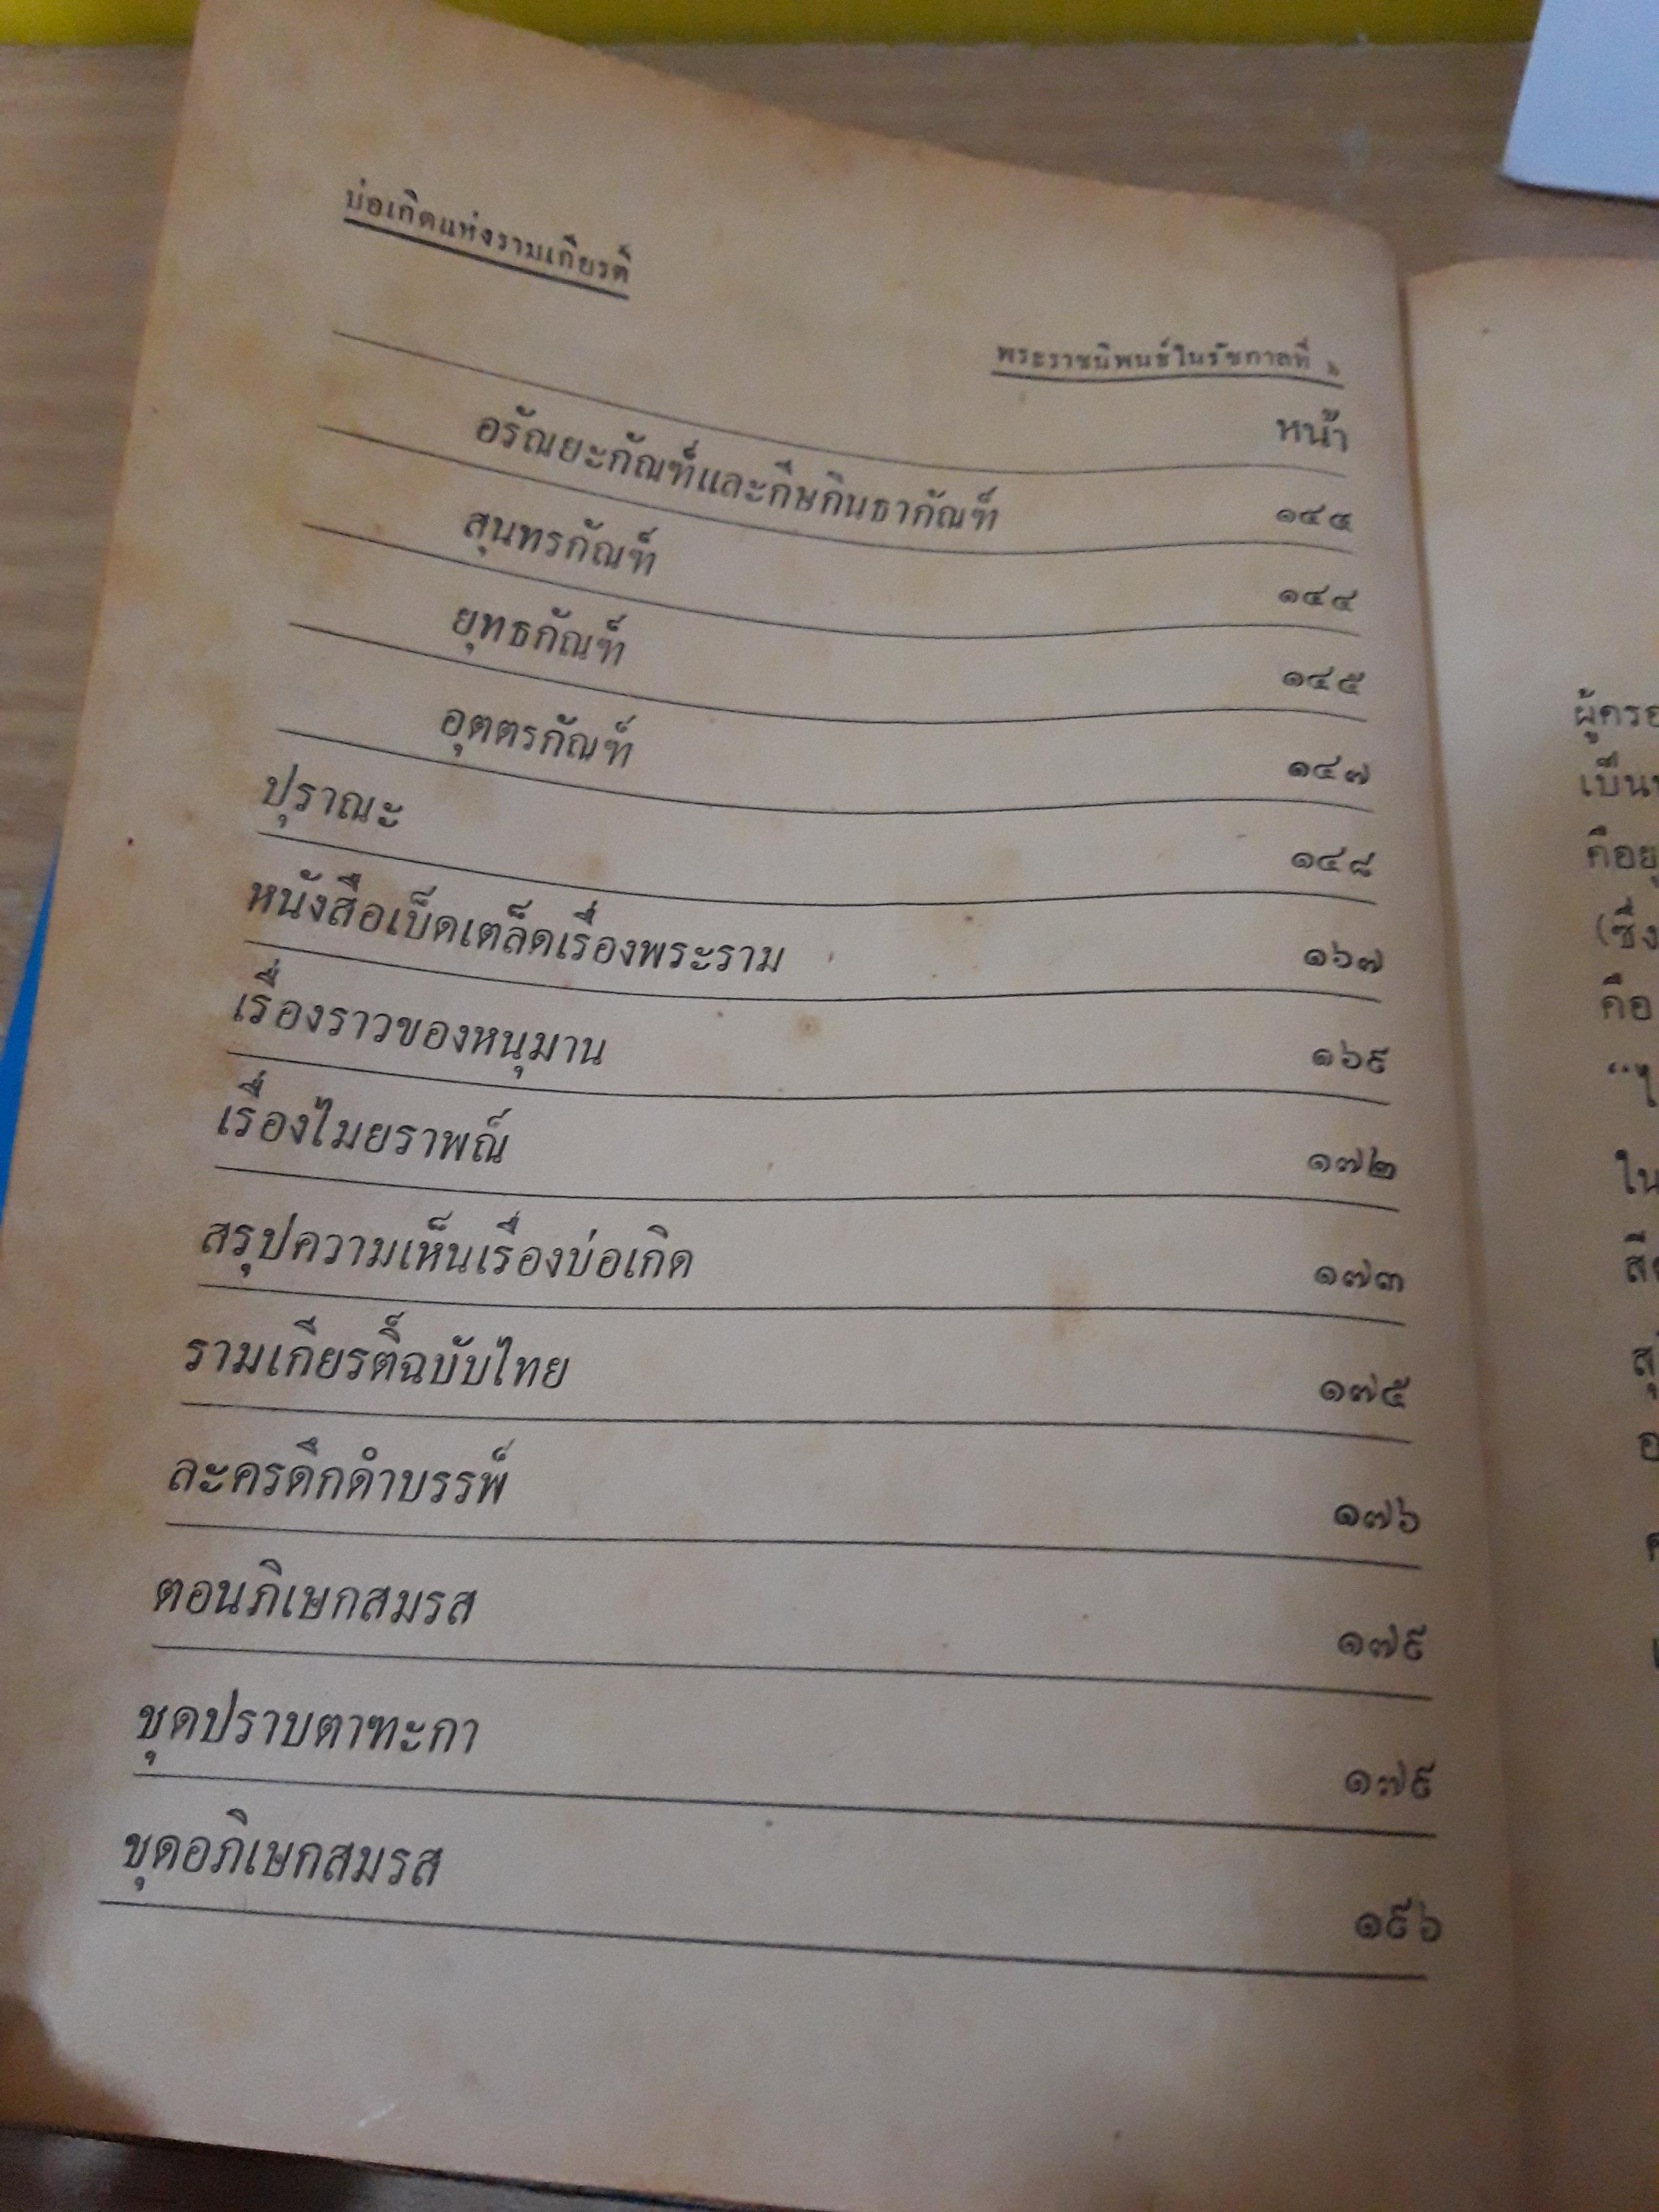 บ่อเกิดแห่งรามเกียรติ์
พระราชนิพนธ์ในรัชกาลที่ ๖
หน้า
อรัณยะกัณฑ์และกีษกินธากัณฑ์ ๑๔๔
สุนทรกัณฑ์ ๑๔๔
ยุทธกัณฑ์ ๑๔๕
อุตตรกัณฑ์ ๑๔๗
ปุราณะ ๑๔๘
หนังสือเบ็ดเตล็ดเรื่องพระราม ๑๖๗
เรื่องราวของหนุมาน ๑๖๙
เรื่องไมยราพณ์ ๑๗๒
สรุปความเห็นเรื่องบ่อเกิด ๑๗๓
รามเกียรติ์ฉบับไทย ๑๗๕
ละครดึกดำบรรพ์ ๑๗๖
ตอนภิเษกสมรส ๑๗๙
ชุดปราบตาฑะกา ๑๗๙
ชุดอภิเษกสมรส ๑๙๖
ผู้ครอ
เป็น
คือ
(ซึ่ง
คือ
“ไ
ใน